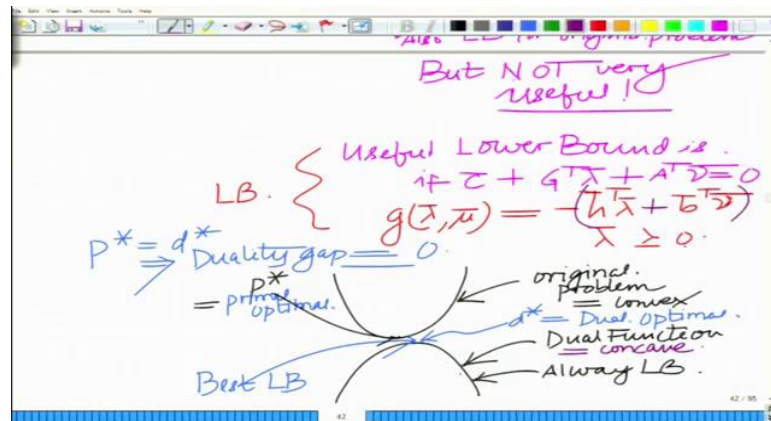 Also LB for original problem
But NOT very
useful!
Useful Lower Bound is.
if c̄ + Gᵀλ̄ + Aᵀν̄ = 0
LB.
g(λ̄, μ̄) = -(h̄ᵀλ̄ + b̄ᵀν̄)
λ̄ ≥ 0.
P* = d*
⇒ Duality gap = 0.
P*
= primal optimal.
original problem
= convex
d* = Dual Optimal.
Dual Function
= concave.
Alway LB.
Best LB
42 / 95
42